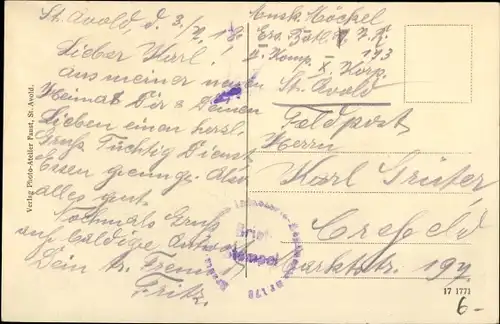 St. Avold, d. 3./2. 18.
Lieber Karl!
aus meiner neuen
Heimat Dir & Deinen
Lieben einen herzl.
Gruß. Tüchtig Dienst
Essen genug. Also
alles gut.
Nochmals Gruß
auf baldige Antwort
Dein tr. Freund
Fritz.
Musk. Höckel
Ers. Batl. I. R.
Komp. 173
X Korp.
St. Avold
Feldpost
Herrn
Karl Grüter,
Crefeld
Marktstr. 197.
Brief
Stempel
Verlag Photo-Atelier Faust, St. Avold.
17 1771
6-